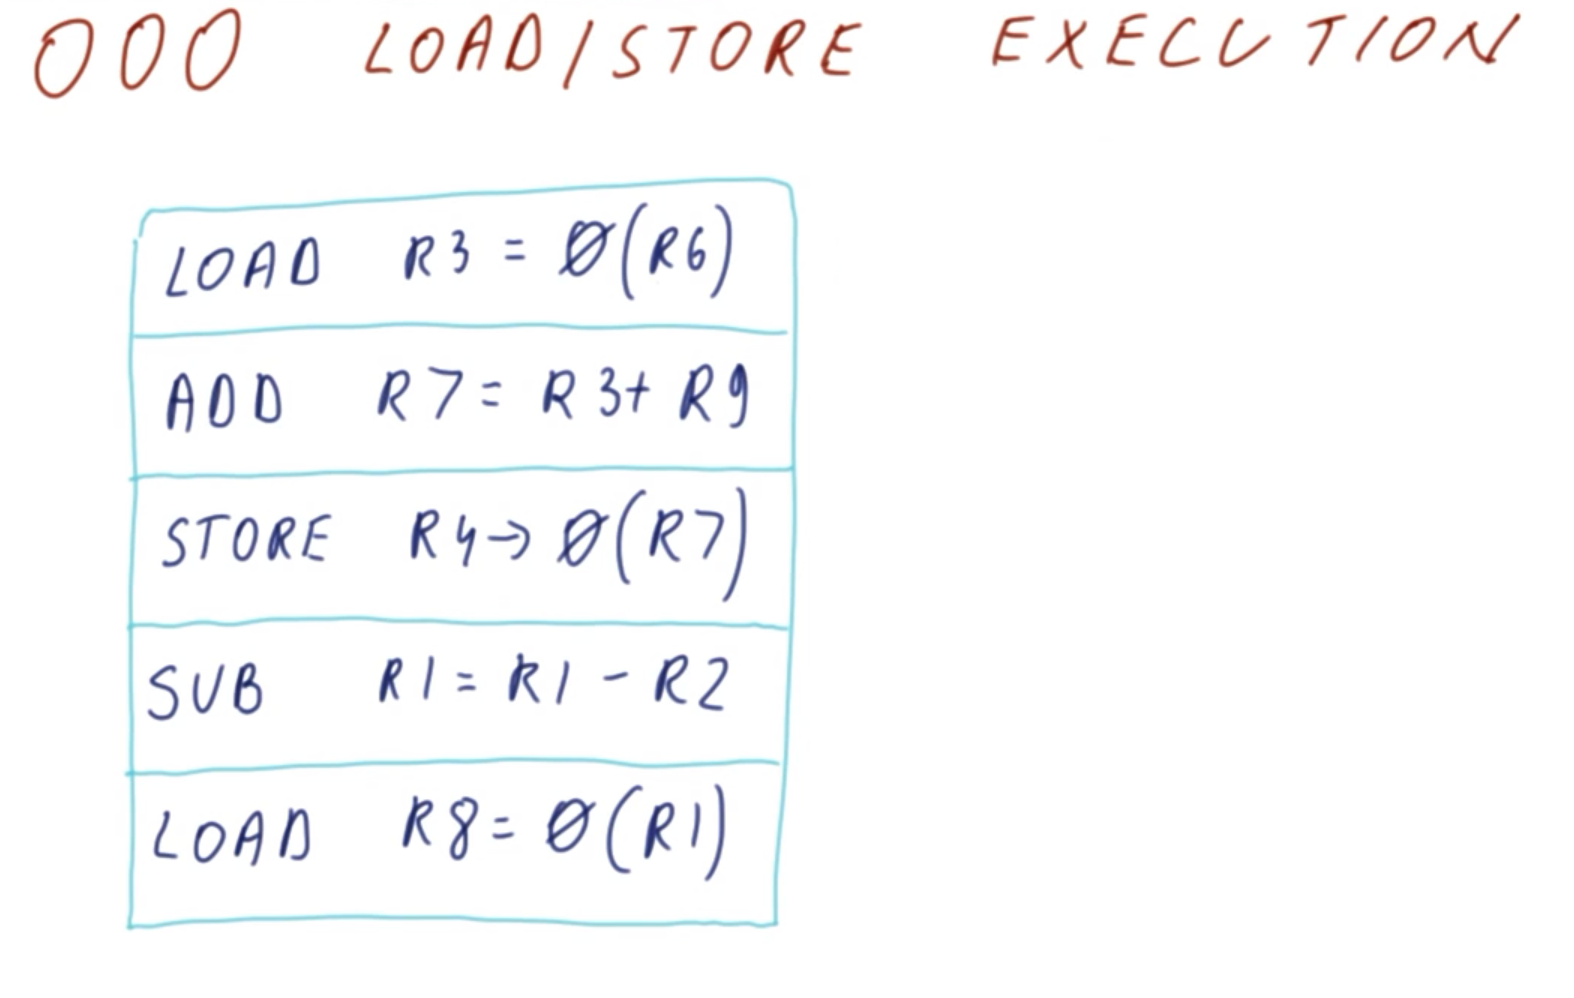 OOO LOAD/STORE EXECUTION
LOAD R3 = Ø(R6)
ADD R7 = R3+ R9
STORE R4→Ø(R7)
SUB R1 = R1 - R2
LOAD R8 = Ø(R1)